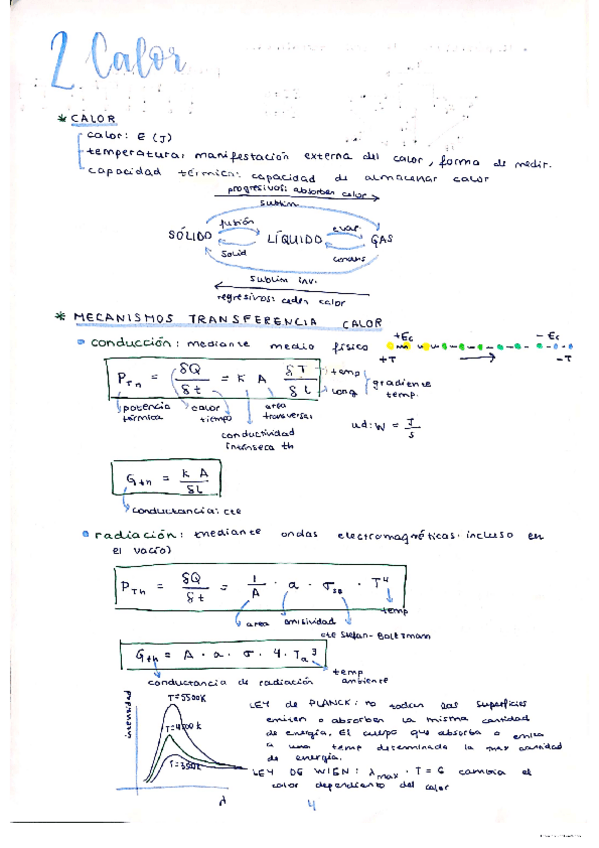 2. Calor
* CALOR
calor: E (J)
temperatura: manifestación externa del calor, forma de medir.
capacidad térmica: capacidad de almacenar calor
progresivos: absorben calor
sublim
fusión
evap
SÓLIDO LÍQUIDO GAS
solid
condens
sublim inv.
regresivos: ceden calor
* MECANISMOS TRANSFERENCIA CALOR
conducción: mediante medio físico
+Ec -Ec
+T -T
P_Tn = δQ/δt = K A δT/δL
temp
long
gradiente temp.
potencia térmica
calor
tiempo
area transversal
conductividad intrínseca th
ud: W = J/s
G_th = K A/δL
conductancia: cte
radiación: mediante ondas electromagnéticas. incluso en
el vacío)
P_Th = δQ/δt = 1/A · a · σ_SB · T⁴
temp
area
emisividad
cte Stefan-Boltzmann
G_th = A · a · σ · 4 · T_a³
temp ambiente
conductancia de radiación
intensidad
T=5500K
T=4500K
T=3500K
λ
LEY de PLANCK: no todas las superficies
emiten o absorben la misma cantidad
de energía. El cuerpo que absorba o emita
a una temp determinada la max cantidad
de energía.
LEY DE WIEN: λmax · T = 6 cambia el
color dependiento del calor
4